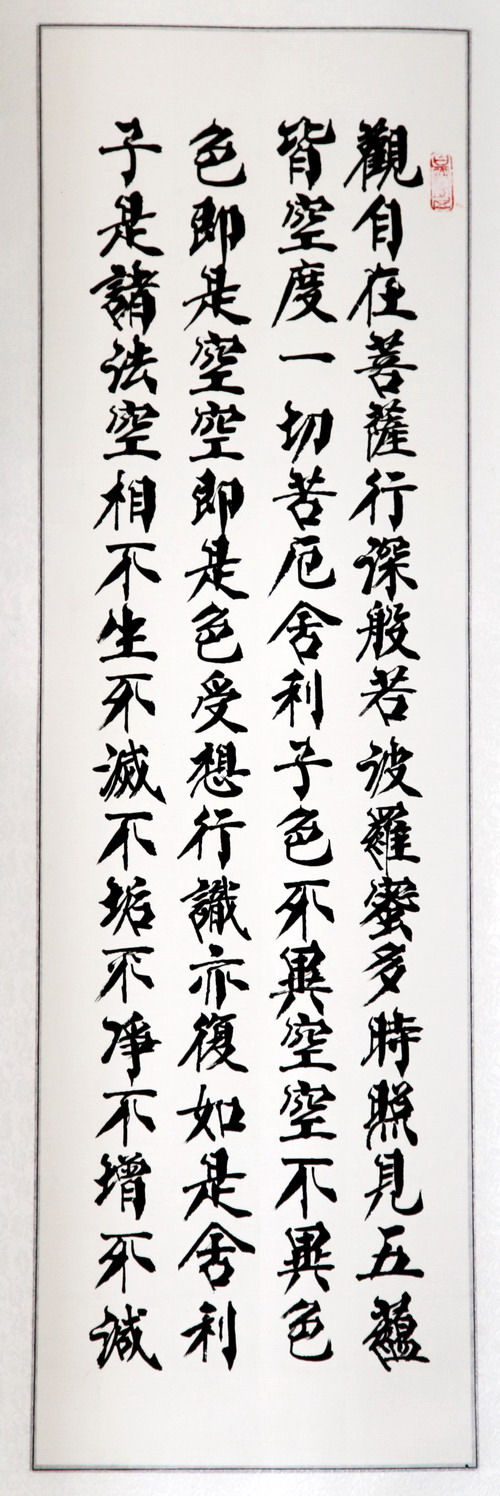 觀自在菩薩行深般若波羅蜜多時照見五蘊
皆空度一切苦厄舍利子色不異空空不異色
色即是空空即是色受想行識亦復如是舍利
子是諸法空相不生不滅不垢不淨不增不減